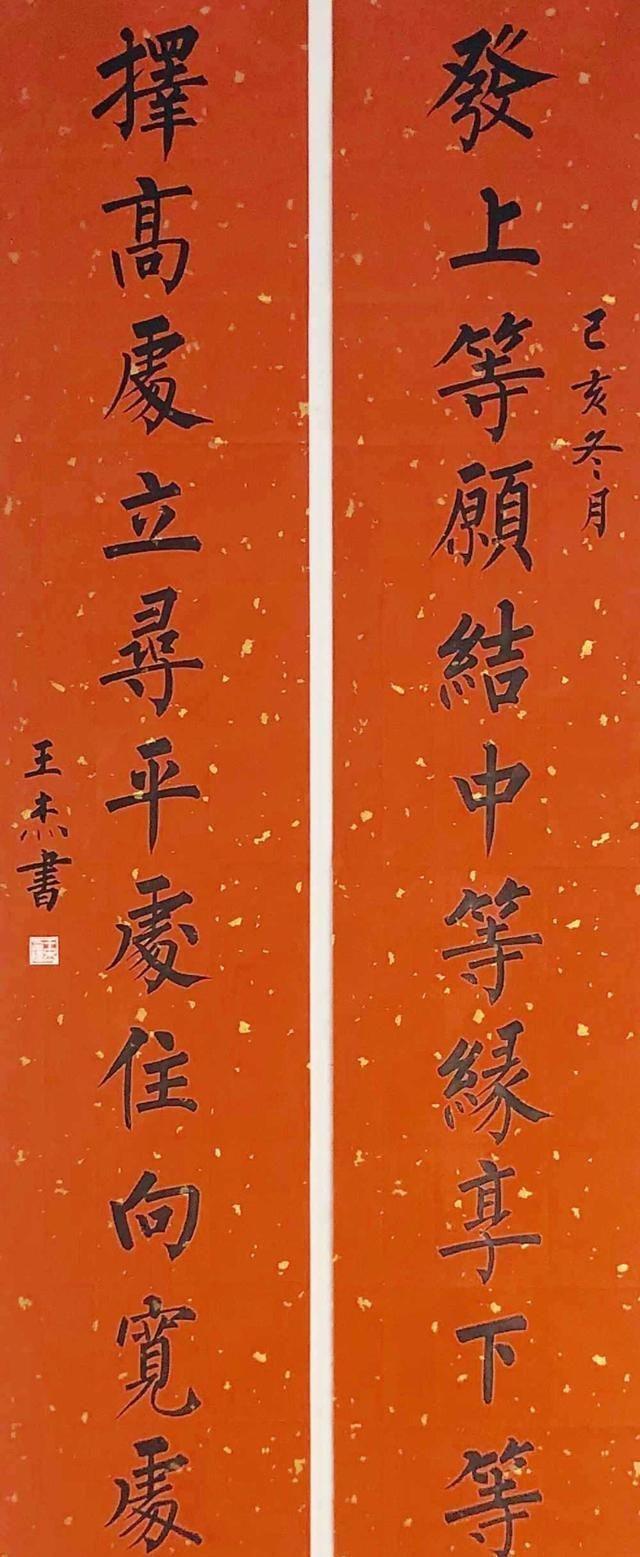 發上等願結中等緣享下等
己亥冬月
擇高處立尋平處住向寬處
王杰書